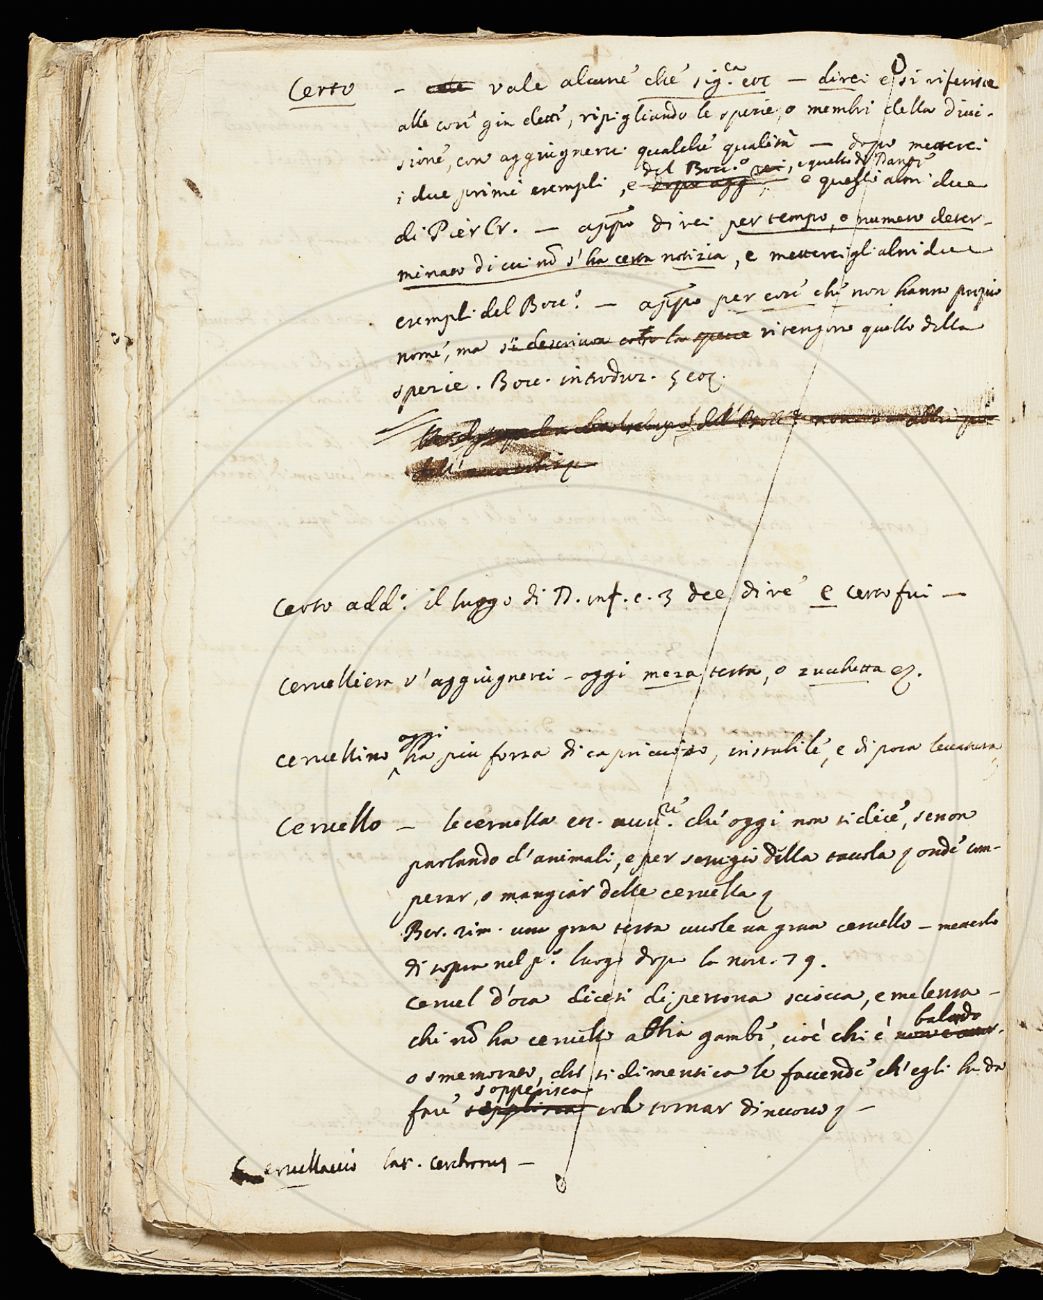 Certo - vale alcune che sig.ca etc — direi e si riferisce
alle cose già dette, ripigliando le spezie, o membri della divi-
sione, con aggiugnere qualche qualità — dopo metterci
i due primi esempli, e del Bocc.o, e quello di Dante e quegli altri due
di Pier Cr. — appo direi per tempo, o numero deter-
minato di cui nō s'ha certa notizia, e metterci gli altri due
esempli del Bocc.o — appo per cose che non hanno propio
nome, ma si descriva ritengono quello della
spezie. Bocc. introduz. 5 etc.
Certo add.o il luogo di D. inf. c. 3 dee dire e certo fui —
Cervelliera v'aggiugnerei - oggi meza testa, o zucchetta
Cervellino oggi ha più forza di capriccioso, instabile, e di poca levatura
Cervello — le cervella che oggi non si dice, se non
parlando d'animali, e per servigio della tavola onde com-
perar, o mangiar delle cervella
Ber. rim. una gran testa vuole un gran cervello — metterlo
di sopra nel p.o luogo dopo la nov. 79.
Cervel d'oca dicesi di persona sciocca, e melensa —
chi nō ha cervello abbia gambe, cioè chi è balordo
o smemorato, che si dimentica le faccende ch'egli ha da
fare sopperisca col tornar di nuovo —
Cervellaccio lat. —